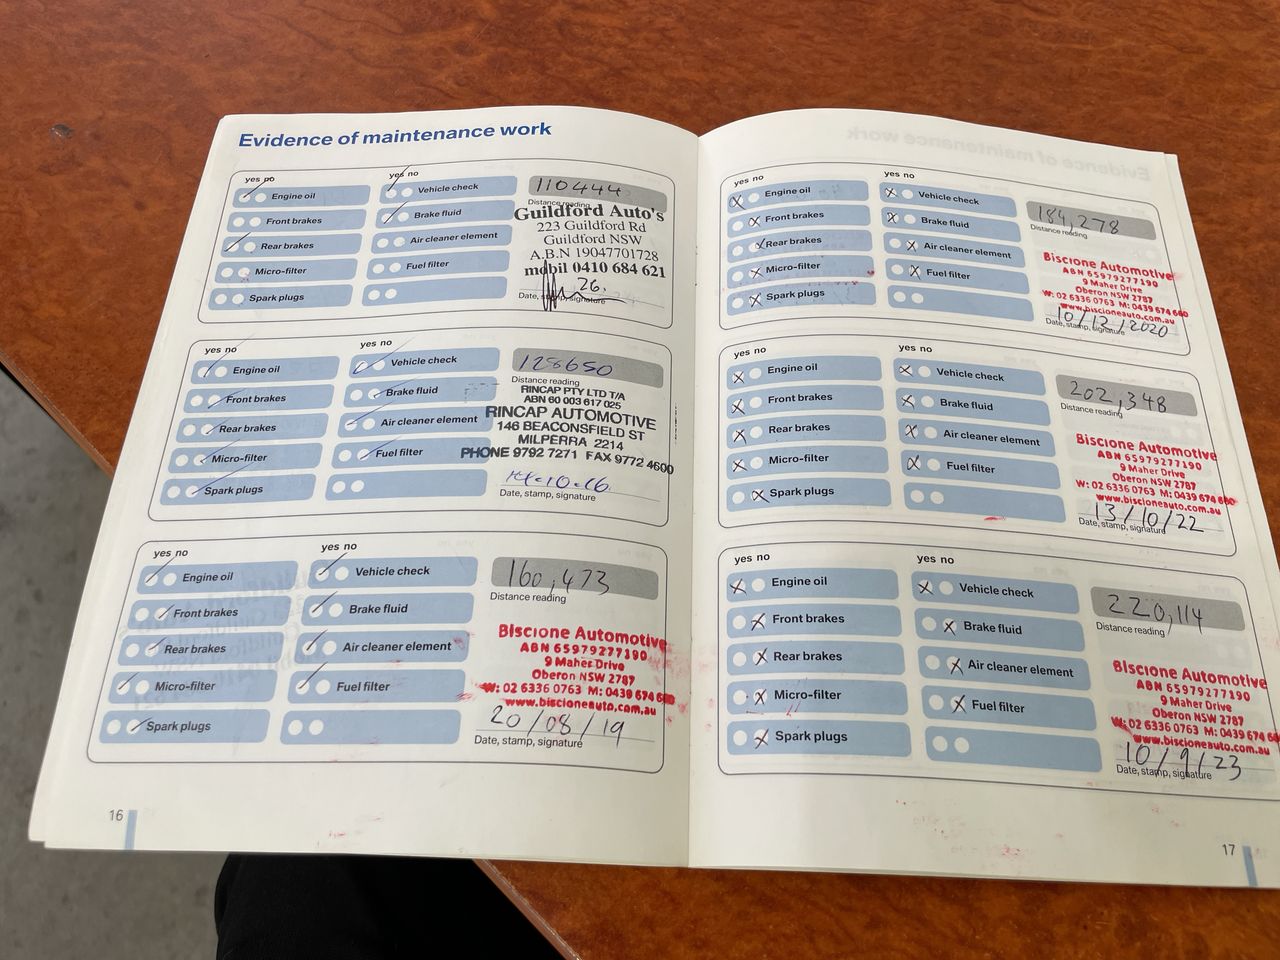 Evidence of maintenance work
yes no
yes no
Engine oil
Vehicle check
110444
Distance reading
Front brakes
Brake fluid
Guildford Auto's
223 Guildford Rd
Guildford NSW
A.B.N 19047701728
mobil 0410 684 621
Rear brakes
Air cleaner element
Micro-filter
Fuel filter
Spark plugs
26.
Date, stamp, signature
yes no
yes no
Engine oil
Vehicle check
128650
Distance reading
Front brakes
Brake fluid
RINCAP PTY LTD T/A
ABN 60 003 617 025
RINCAP AUTOMOTIVE
146 BEACONSFIELD ST
MILPERRA 2214
PHONE 9792 7271 FAX 9772 4600
Rear brakes
Air cleaner element
Micro-filter
Fuel filter
Spark plugs
Date, stamp, signature
yes no
yes no
Engine oil
Vehicle check
160,473
Distance reading
Front brakes
Brake fluid
Rear brakes
Air cleaner element
Biscione Automotive
ABN 65979277190
9 Maher Drive
Oberon NSW 2787
W: 02 6336 0763 M: 0439 674 660
www.biscioneauto.com.au
Micro-filter
Fuel filter
Spark plugs
20/08/19
Date, stamp, signature
16
yes no
yes no
Engine oil
Vehicle check
184,278
Distance reading
Front brakes
Brake fluid
Rear brakes
Air cleaner element
Biscione Automotive
ABN 65979277190
9 Maher Drive
Oberon NSW 2787
W: 02 6336 0763 M: 0439 674 660
www.biscioneauto.com.au
Micro-filter
Fuel filter
Spark plugs
10/12/2020
Date, stamp, signature
yes no
yes no
Engine oil
Vehicle check
202,348
Distance reading
Front brakes
Brake fluid
Rear brakes
Air cleaner element
Biscione Automotive
ABN 65979277190
9 Maher Drive
Oberon NSW 2787
W: 02 6336 0763 M: 0439 674 660
www.biscioneauto.com.au
Micro-filter
Fuel filter
Spark plugs
13/10/22
Date, stamp, signature
yes no
yes no
Engine oil
Vehicle check
220,114
Distance reading
Front brakes
Brake fluid
Rear brakes
Air cleaner element
Biscione Automotive
ABN 65979277190
9 Maher Drive
Oberon NSW 2787
W: 02 6336 0763 M: 0439 674 660
www.biscioneauto.com.au
Micro-filter
Fuel filter
Spark plugs
10/9/23
Date, stamp, signature
17